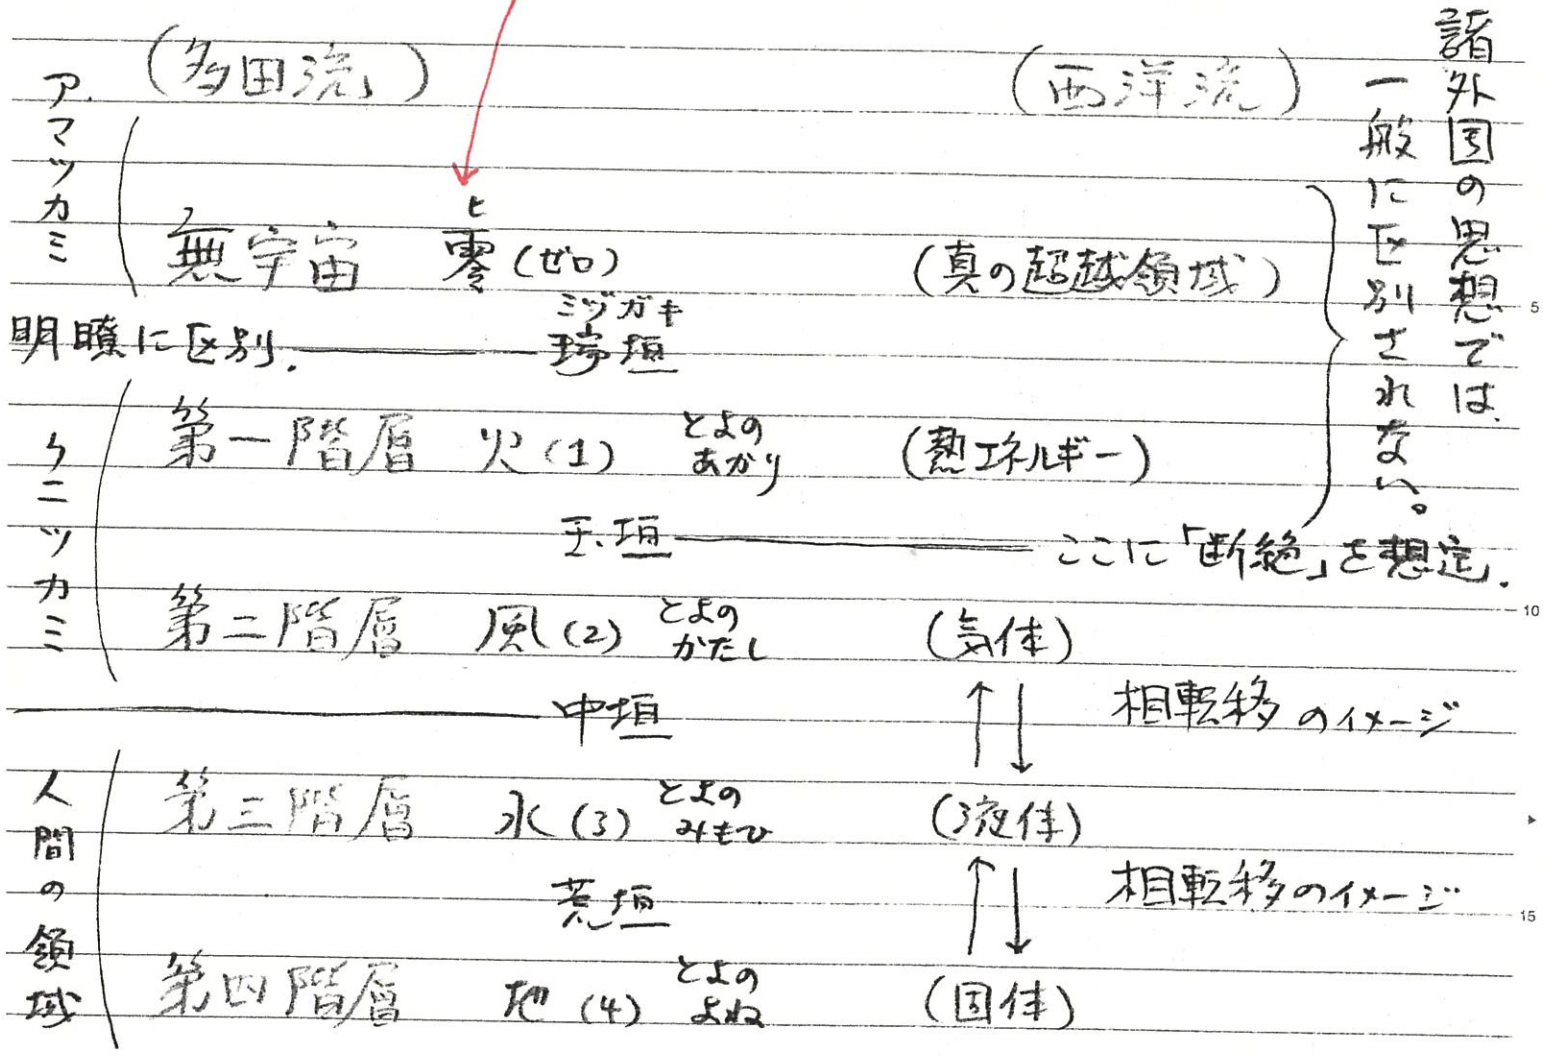 諸外国の思想では、
一般に区別されない。
(多田流)
(西洋流)
アマツカミ
ム
無宇宙 零(ゼロ) (真の超越領域)
ヒ
ミヅガキ
明瞭に区別。 瑞垣
クニツカミ
第一階層 火(1) とよのあかり (熱エネルギー)
玉垣 ここに「断絶」を想定.
第二階層 風(2) とよのかたし (気体)
中垣 ↑↓ 相転移のイメージ
人間の領域
第三階層 水(3) とよのみもひ (液体)
荒垣 ↑↓ 相転移のイメージ
第四階層 地(4) とよのよね (固体)
5
10
15